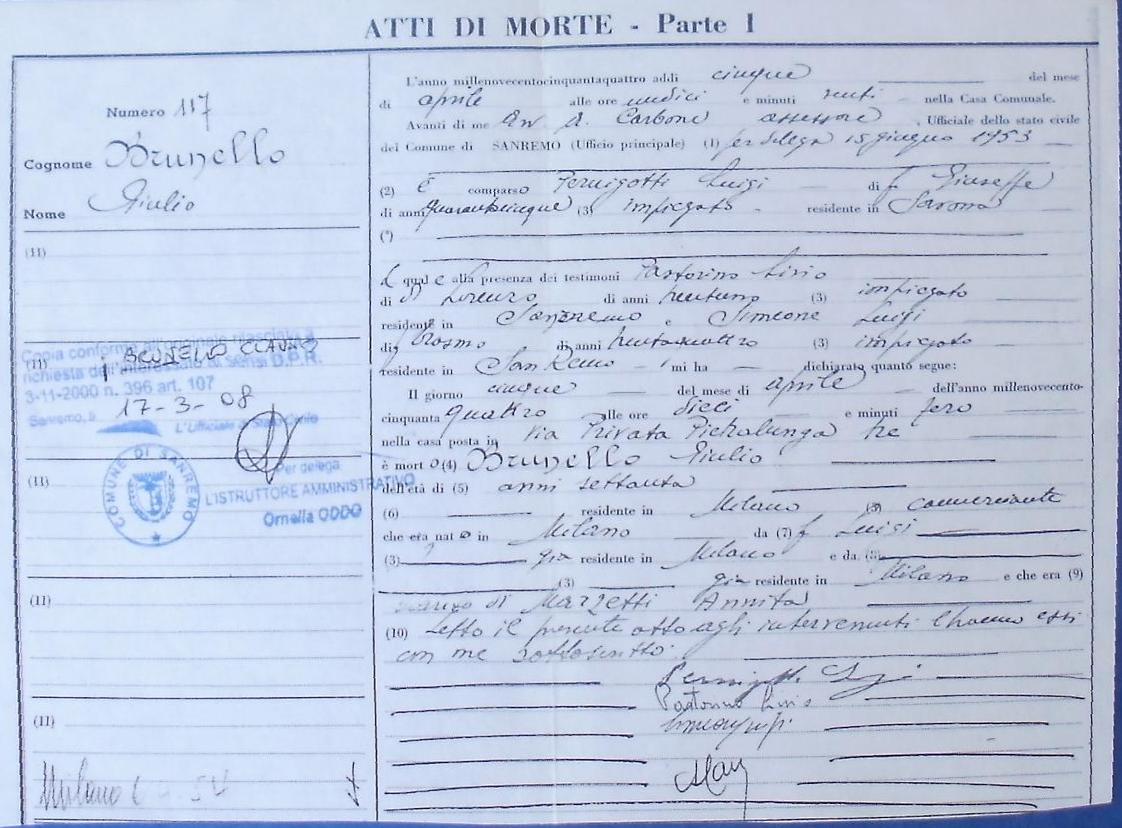 ATTI DI MORTE - Parte I
Numero 117
Cognome Brunello
Nome Giulio
(11)
(11)
Copia conforme all'originale rilasciata a
BRUNELLO CLAUDIO
richiesta dell'interessato ai sensi D.P.R.
3-11-2000 n. 396 art. 107
17-3-08
Sanremo, li
L'Ufficiale di Stato Civile
Per delega
L'ISTRUTTORE AMMINISTRATIVO
Ornella ODDO
COMUNE DI SANREMO
(11)
(11)
(11)
Milano 6.4.54
L'anno millenovecentocinquantaquattro addì cinque del mese
di aprile alle ore undici e minuti venti nella Casa Comunale.
Avanti di me Avv. A. Carbone assessore, Ufficiale dello stato civile
del Comune di SANREMO (Ufficio principale) (1) per delega 15 giugno 1953
(2) È comparso Pernigotti Luigi di f. Giuseppe
di anni quarantacinque (3) impiegato residente in Savona
(*)
l qual e alla presenza dei testimoni Pastorino Livio
di di Lorenzo di anni trentuno (3) impiegato
residente in Sanremo e Simeone Luigi
di Cosmo di anni trentaquattro (3) impiegato
residente in San Remo mi ha dichiarato quanto segue:
Il giorno cinque del mese di aprile dell'anno millenovecento-
cinquanta quattro alle ore dieci e minuti zero
nella casa posta in Via Privata Pietralunga tre
è mort o (4) Brunello Giulio
dell'età di (5) anni settanta
(6) residente in Milano (3) commerciante
che era nat o in Milano da (7) f Luigi
(3) già residente in Milano e da (8)
(3) già residente in Milano e che era (9)
marito di Marzetti Annita
(10) Letto il presente atto agli intervenuti l'hanno essi
con me sottoscritto.
Pernigotti Luigi
Pastorino Livio
Simeone Luigi